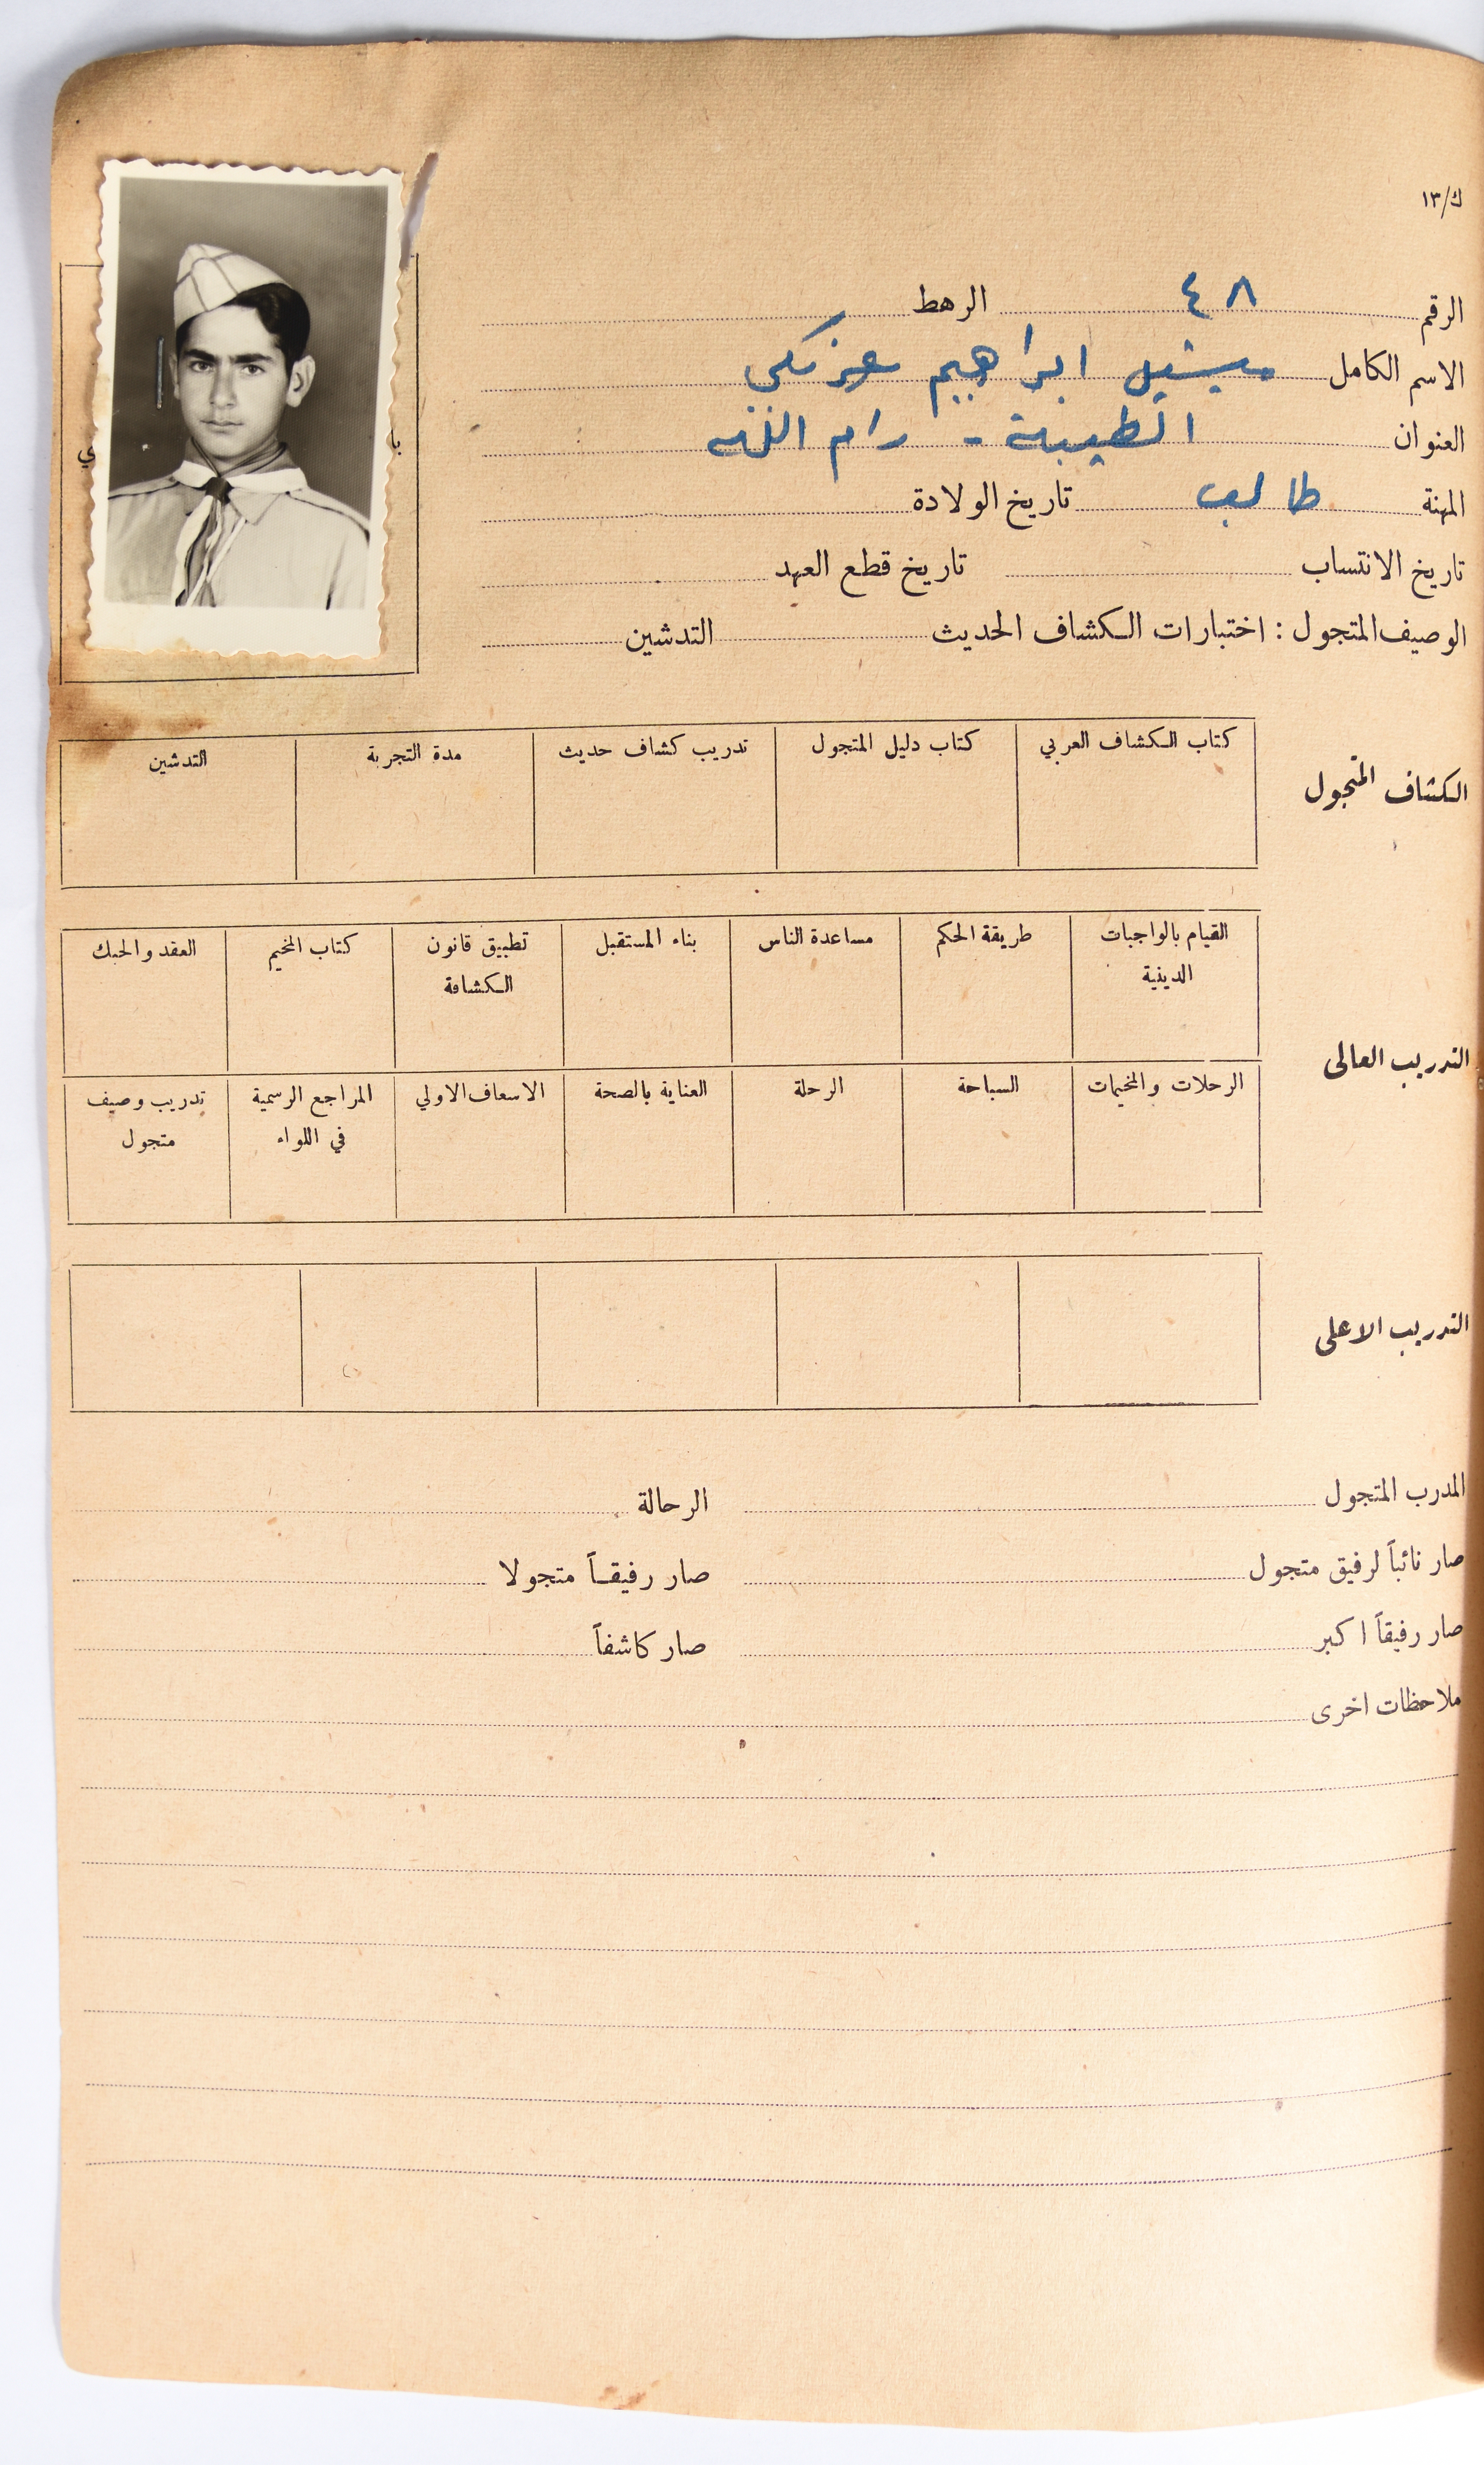 ك/١٣
الرقم ٤٨ الرهط
الاسم الكامل ميشيل ابراهيم
العنوان الطيبة - رام الله
المهنة طالب تاريخ الولادة
تاريخ الانتساب تاريخ قطع العهد
الوصيف المتجول : اختبارات الكشاف الحديث التدشين
الكشاف المتجول
كتاب الكشاف العربي كتاب دليل المتجول تدريب كشاف حديث مدة التجربة التدشين
التدريب العالى
القيام بالواجبات الدينية طريقة الحكم مساعدة الناس بناء المستقبل تطبيق قانون الكشافة كتاب المخيم العقد والحبك
الرحلات والمخيمات السباحة الرحلة العناية بالصحة الاسعاف الاولي المراجع الرسمية في اللواء تدريب وصيف متجول
التدريب الاعلى
المدرب المتجول الرحالة
صار نائباً لرفيق متجول صار رفيقاً متجولا
صار رفيقاً اكبر صار كاشفاً
ملاحظات اخرى